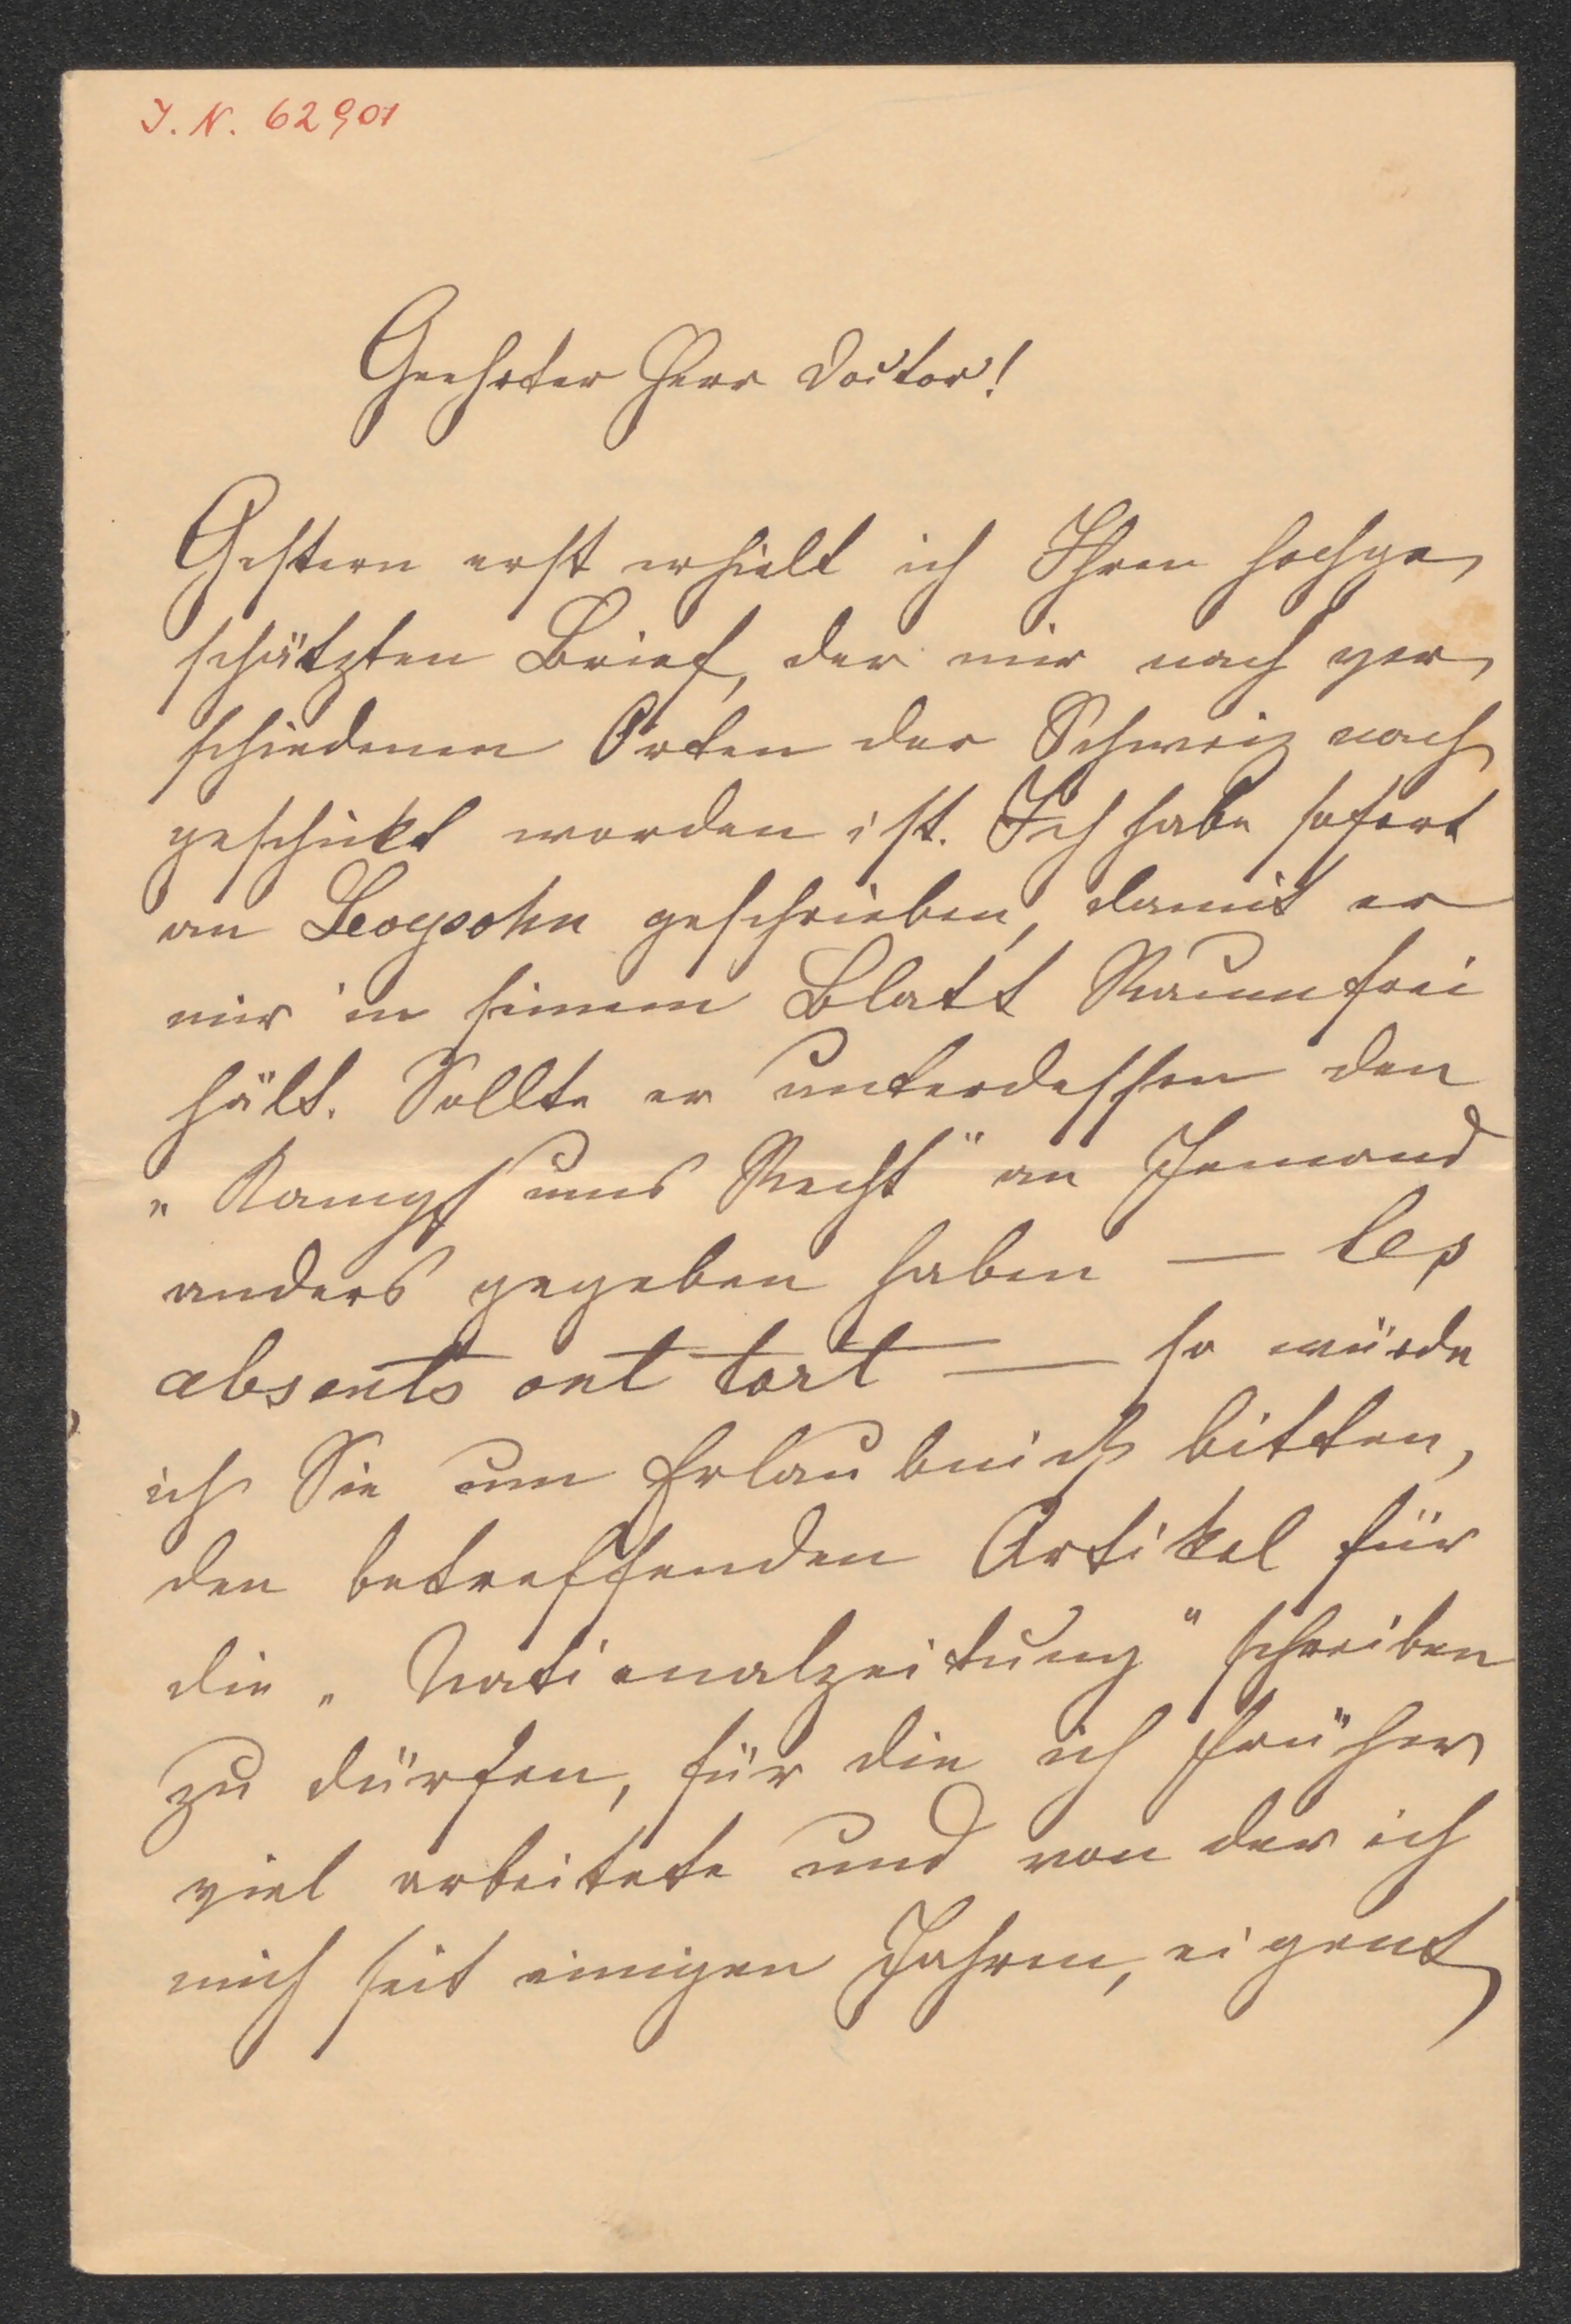 J. N. 62901
Geehrter Herr Doctor!
Gestern erst erhielt ich Ihren hochge-
schätzten Brief, der mir nach ver-
schiedenen Orten der Schweiz nach
geschickt worden ist. Ich habe sofort
an Levysohn geschrieben, damit er
mir in seinem Blatt Raum frei
hält. Sollte er unterdessen den
„Kampf ums Recht" an Jemand
anders gegeben haben — les
absents ont tort — so würde
ich Sie um Erlaubniß bitten,
den betreffenden Artikel für
die „Nationalzeitung" schreiben
zu dürfen, für die ich früher
viel arbeitete und von der ich
mich seit einigen Jahren, eigent